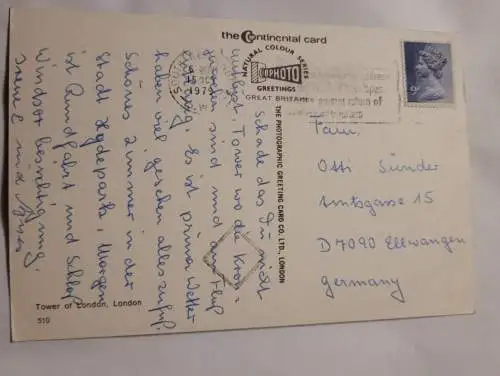 the Continental card
NATURAL COLOUR SERIES
PHOTO
GREETINGS
GREAT BRITAIN
THE PHOTOGRAPHIC GREETING CARD CO., LTD., LONDON
1979
Schade das Du nicht
Tower wo die Kron =
sind und am Fluß
Es ist prima Wetter
haben viel gesehen alles zu Fuß.
Schönes Zimmer in der
Stadt Hydepark, Morgen
ist Rundfahrt und Schloß
Windsor besichtigung.
Fam.
Otti Sünder
Amtsgasse 15
D 7090 Ellwangen
Germany
Tower of London, London
510